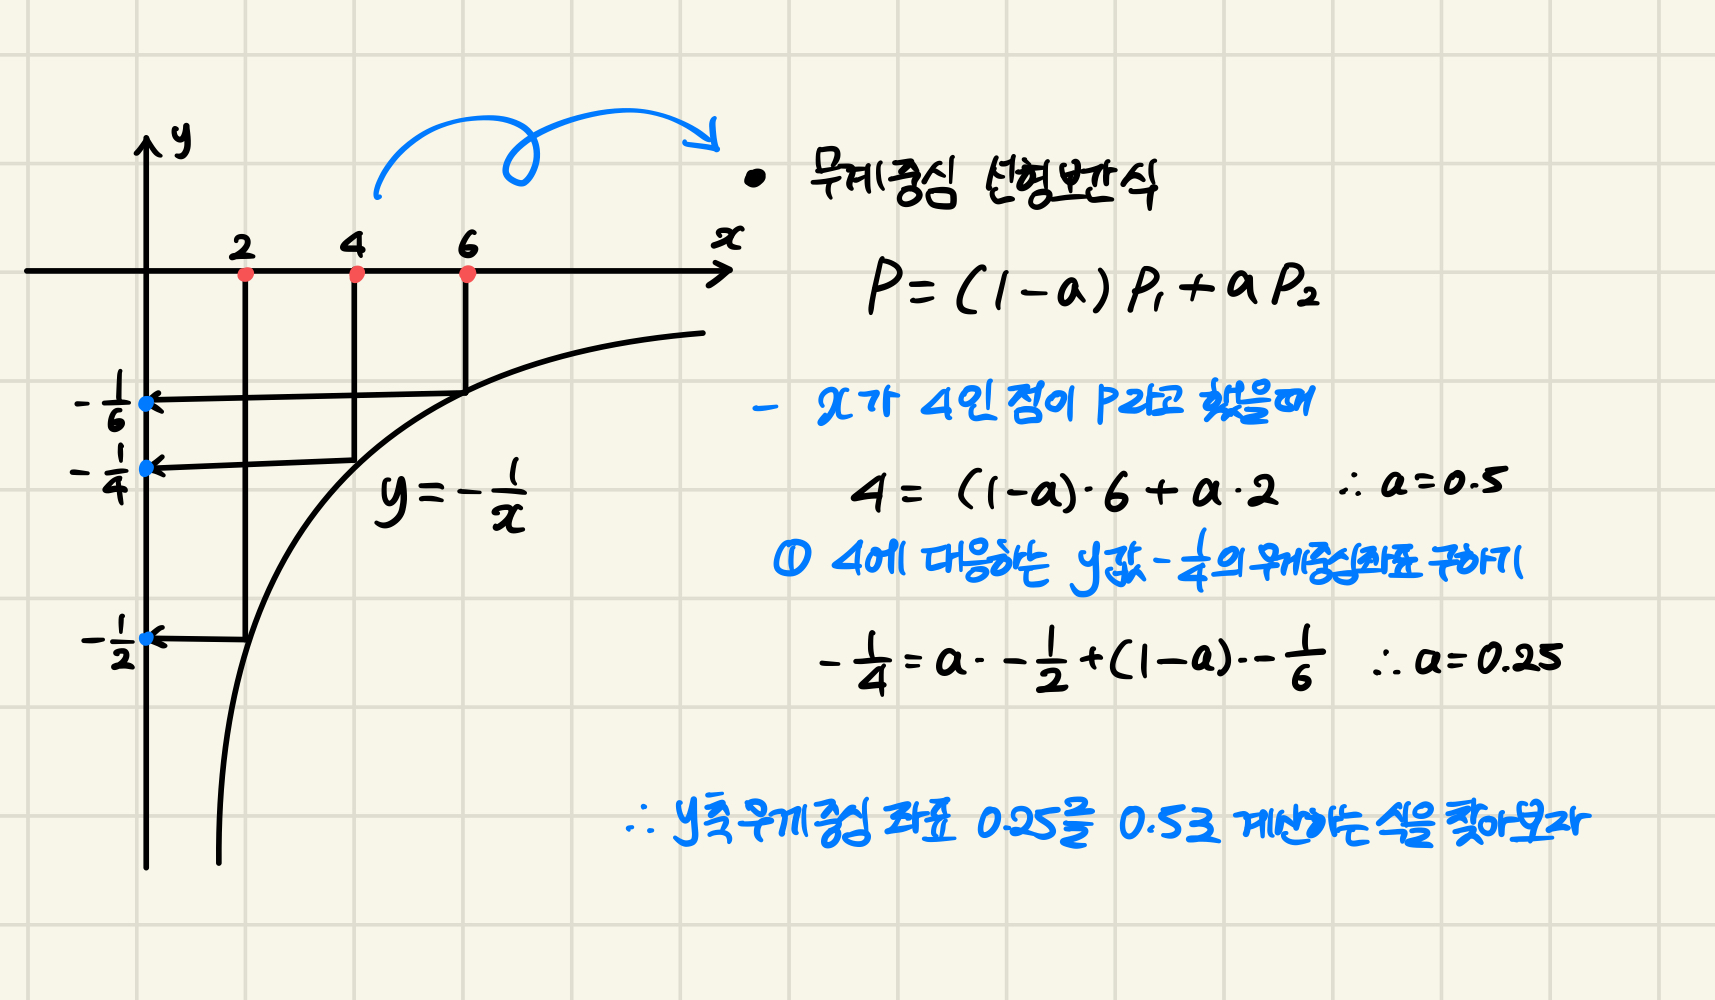 y
2 4 6 x
-1/6
-1/4
-1/2
y = -1/x
• 무게중심 선형보간식
P = (1-a) P₁ + a P₂
- x가 4인 점이 P라고 했을때
4 = (1-a)·6 + a·2 ∴ a = 0.5
① 4에 대응하는 y값 -1/4의 무게중심좌표 구하기
-1/4 = a· -1/2 + (1-a)· -1/6 ∴ a = 0.25
∴ y축 무게중심 좌표 0.25를 0.5로 계산하는 식을 찾아보자